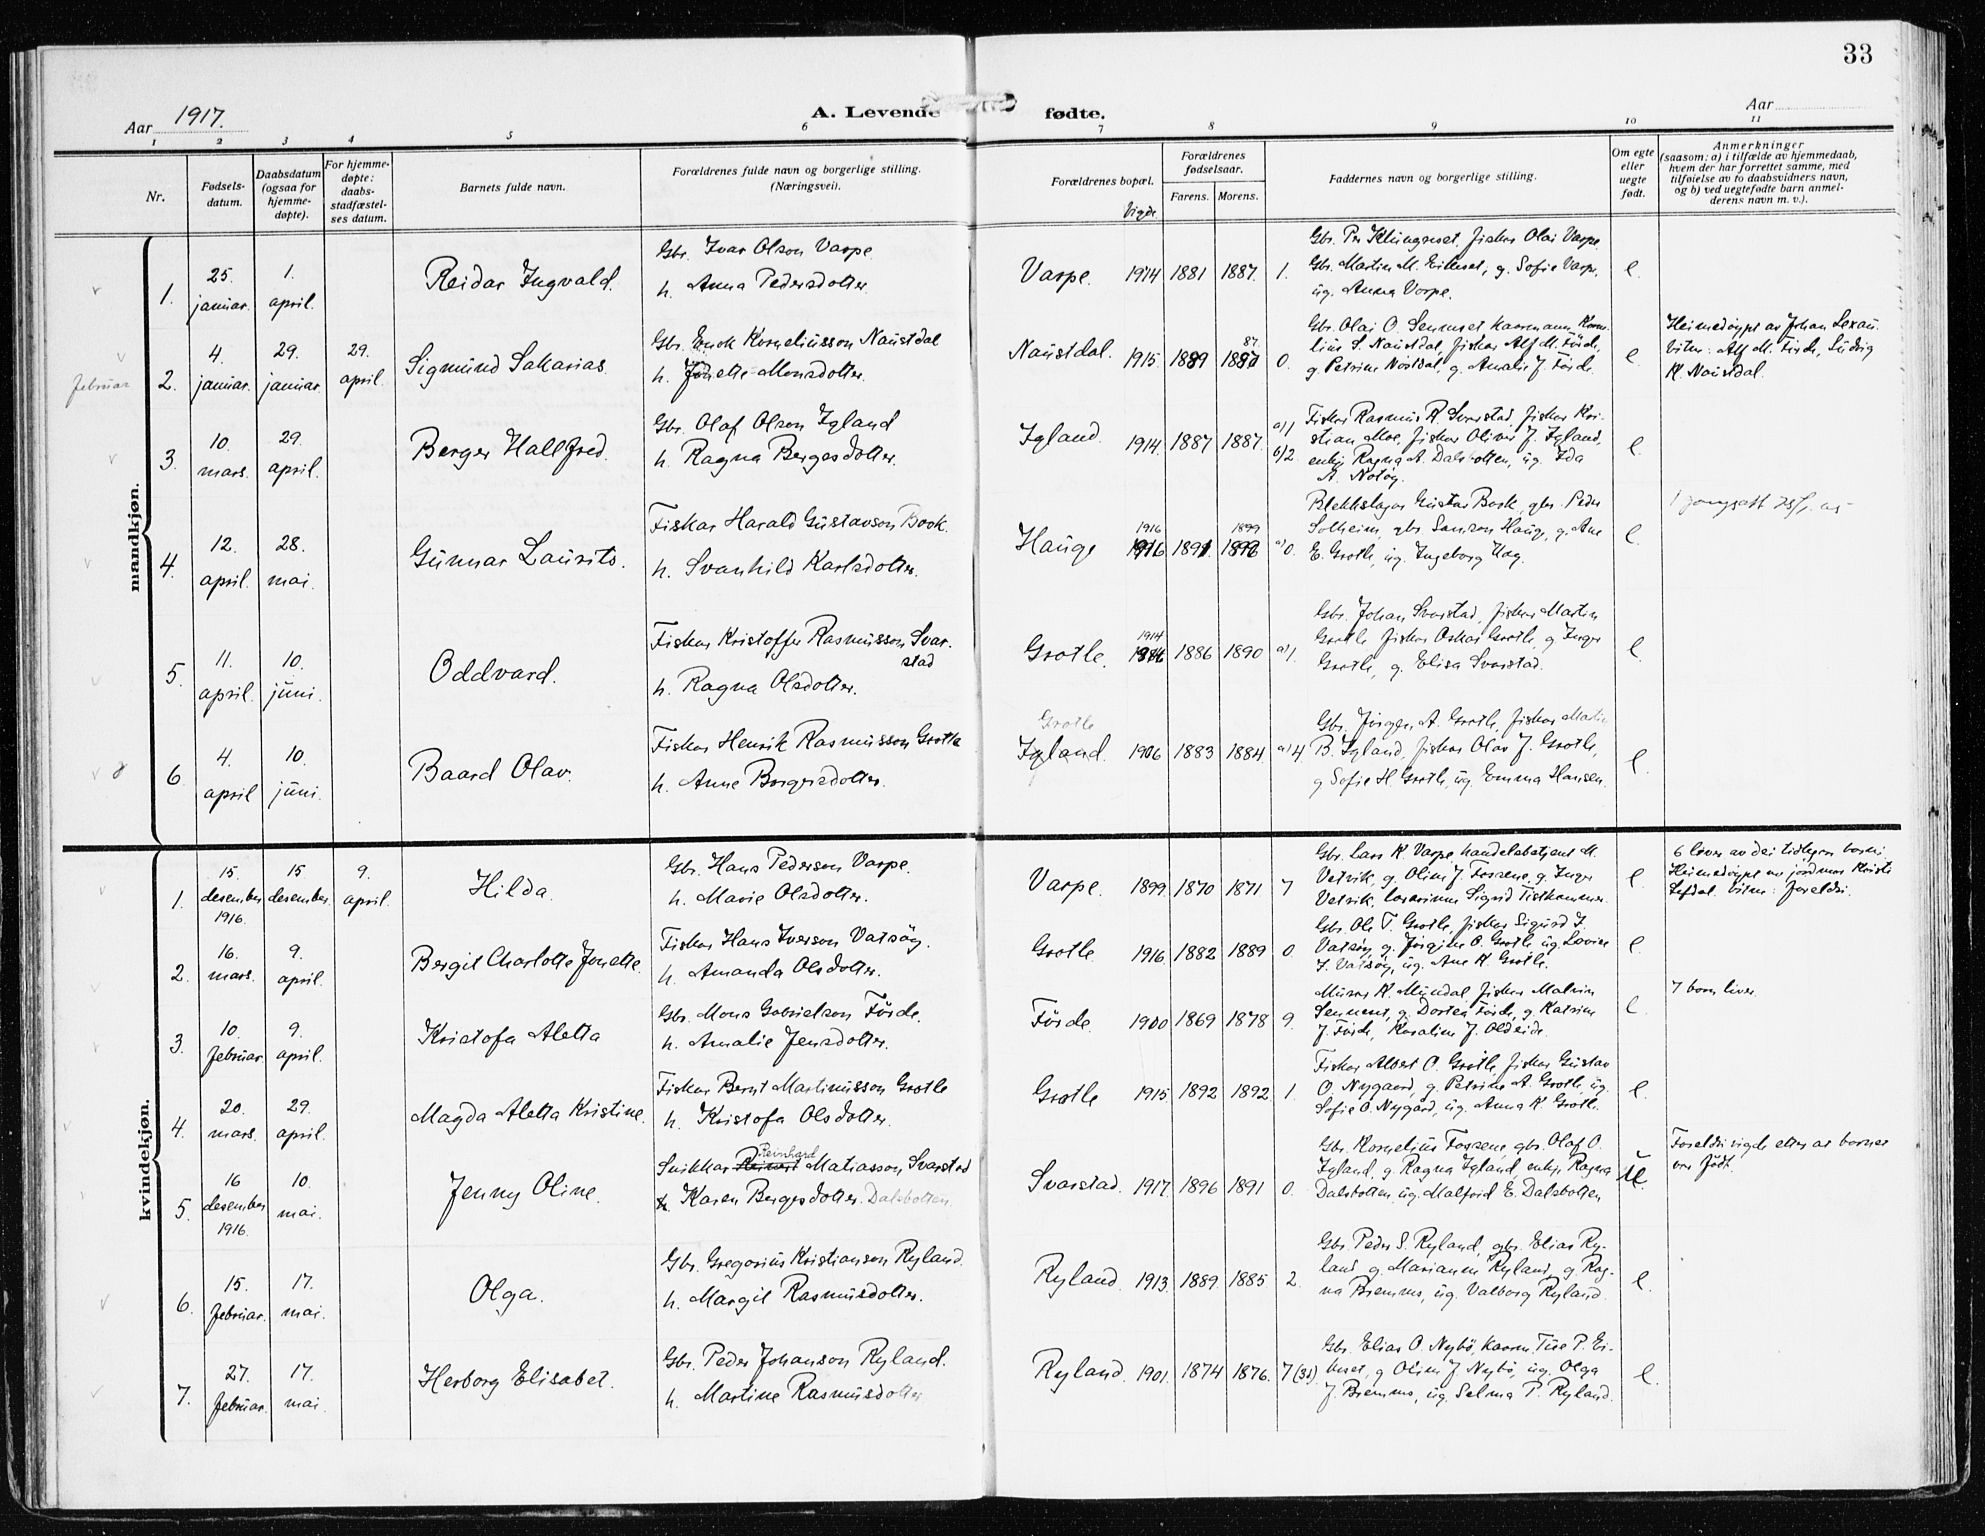 33
Aar 1917.
A. Levende fødte.
Aar
1 2 3 4 5 6 7 8 9 10 11
Nr.
Fødsels-
datum.
Daabsdatum
(ogsaa for
hjemme-
døpte).
For hjemme-
døpte:
daabs-
stadfæstel-
ses datum.
Barnets fulde navn.
Forældrenes fulde navn og borgerlige stilling.
(Næringsvei).
Forældrenes bopæl.
Vigde.
Forældrenes
fødselsaar.
Farens. Morens.
Faddernes navn og borgerlige stilling.
Om egte
eller
uegte
født.
Anmerkninger
(saasom: a) i tilfælde av hjemmedaab,
hvem der har forrettet samme, med
tilføielse av to daabsvidners navn,
og b) ved uegtefødte barn anmel-
derens navn m. v.).
mandkjøn.
1.
25.
januar.
1.
april.
Reidar Ingvald.
Gbr. Ivar Olson Varpe
h. Anna Pedersdotter.
Varpe. 1914 1881 1887. 1.
Gbr. Per Klungreset, fiskar Olai Varpe
Gbr. Martin M. Eikeset, g. Sofie Varpe,
ug. Anna Varpe.
e.
februar
2.
4.
januar.
29.
januar.
29.
april.
Sigmund Sakarias.
Gbr. Enok Korneliusson Naustdal
h. Jonette Monsdotter.
Naustdal. 1915. 1889 87. 0.
Gbr. Olai O. Senneset kaarmann Korne-
lius S. Naustdal, fiskar Alf M. Førde,
g. Petrine Nøstdal, g. Amalie J. Førde.
e.
Heimedøypt av Johan Lexau.
Vitne: Alf M. Førde, Ludvig
K. Naustdal.
3.
10.
mars.
29.
april.
Berger Hallfred.
Gbr. Olaf Olson Igland
h. Ragna Bergesdotter.
Igland. 1914. 1887 1887. a)1 b)2.
Fiskar Rasmus R. Svarstad, fiskar Kri-
stian Moe, fiskar Oliver J. Igland,
enkje Ragna A. Dalsbotten, ug. Ida
A. Notøy.
e.
4.
12.
april.
28.
mai.
Gunnar Laurits.
Fiskar Harald Gustavson Book.
h. Svanhild Karlsdotter.
Hauge 1916 1891. 1899 a)0.
Blekkslagar Gustav Book, gbr. Peder
Solheim, gbr. Samson Haug, g. Ane
E. Grotle, ug. Ingeborg Haug.
e.
5.
11.
april.
10.
juni.
Oddvard.
Fiskar Kristoffer Rasmusson Svar-
stad
h. Ragna Olsdotter.
Grotle. 1914 1886 1890 a)1.
Gbr. Johan Svarstad, fiskar Martin
Grotle fiskar Oskar Grotle, g Inger
Grotle, g. Elisa Svarstad.
e.
6.
4.
april
10.
juni.
Baard Olav.
Fiskar Henrik Rasmusson Grotle
h. Anne Borgersdotter.
Grotle
Igland. 1906 1883 1884 a)4.
Gbr. Jørgen A. Grotle, fiskar Martin
B. Igland, fiskar Olav J. Grotle,
g Sofie H Grotle, ug. Emma Hansen.
e.
kvindekjøn.
1.
15.
desember
1916.
15
desember.
9.
april.
Hilda.
Gbr. Hans Pederson Varpe.
h. Marie Olsdotter.
Varpe. 1899. 1870 1871. 7
Gbr. Lars K. Varpe, handelsbetjent M.
Vetvik, g. Oline J. Fossene, g. Inger
Vetvik, lærarinne Sigrid Tistkammer.
e.
6 lever av dei tidlegare borni.
Heimedøypt av jordmor Kristi
Lefdal. Vitne: foreldri.
2.
16.
mars.
9.
april.
Bergit Charlotte Jonette.
Fiskar Hans Iverson Vatsøy.
h. Amanda Olsdotter.
Grotle 1916. 1882 1889 0.
Gbr. Ole T. Grotle, fiskar Sigurd I.
Vatsøy, g. Jørgine O. Grotle ug. Lovise
I. Vatsøy, ug. Ane K. Grotle.
e.
3.
10.
februar.
9.
april.
Kristofa Aletta
Gbr. Mons Gabrielson Førde.
h. Amalie Jensdotter.
Førde. 1900 1869 1878 9.
Murar K. Mundal, fiskar Matias
Senneset, g. Dortea Førde, g. Katrine
J. Førde, Rosaline J. Oldeide.
e.
7 born liver.
4.
20.
mars.
29.
april.
Magda Aletta Kristine.
Fiskar Bernt Martinusson Grotle
h. Kristofa Olsdotter.
Grotle 1915. 1892 1892. 1.
Fiskar Albert O. Grotle, fiskar Gustav
O. Nygaard, g. Petrine A. Grotle, ug.
Sofie O. Nygård, ug. Anna K. Grotle.
e.
5.
16
desember
1916.
10.
mai.
Jenny Oline.
Reinhard
Snikkar Reinert Matiasson Svarstad
h. Karen Bergesdotter. Dalsbotten
Svarstad. 1917. 1896 1891 0.
Gbr. Kornelius Fossene, gbr. Olaf O.
Igland, g. Ragna Igland, enkje Ragna
Dalsbotten, ug. Malfrid E. Dalsbotten
Foreldri vigde etter at barnet
var født.
6.
15.
februar.
17.
mai.
Olga.
Gbr. Gregorius Kristianson Ryland.
h. Margit Rasmusdotter.
Ryland. 1913. 1889 1885 2.
Gbr. Peder S. Ryland, gbr. Elias Ry-
land g. Marianne Ryland, g Rag-
na Bremnes, ug. Valborg Ryland.
e.
7.
27.
februar.
17.
mai.
Herborg Elisabet.
Gbr. Peder Johanson Ryland.
h. Martine Rasmusdotter
Ryland. 1901. 1874 1876. 7 (3d).
Gbr. Elias O. Nybø, kaarm. Ture P. Ei-
keset, g Oline J Nybø, ug. Olga
J. Bremnes, ug. Selma P. Ryland.
e.